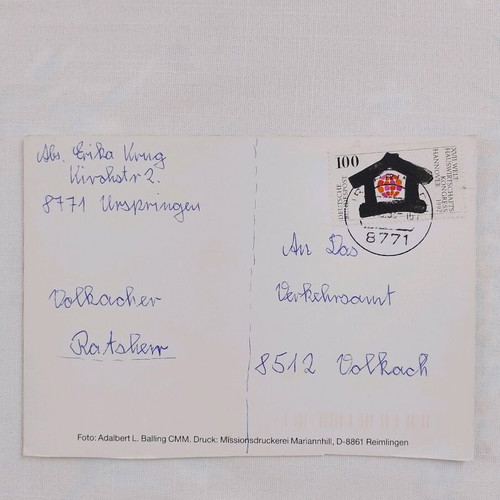 Abs. Erika Krug
Kirchstr 2.
8771 Urspringen
Volkacher
Ratsherr
100
DEUTSCHE
BUNDESPOST
XVII. WELT
HAUSWIRTSCHAFTS
KONGRESS
HANNOVER 1992
8771
An Das
Verkehrsamt
8512 Volkach
Foto: Adalbert L. Balling CMM. Druck: Missionsdruckerei Mariannhill, D-8861 Reimlingen